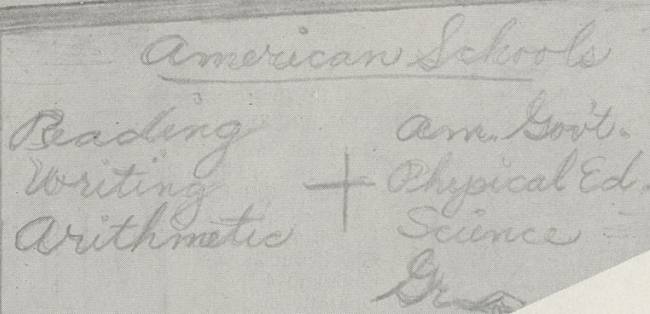 American Schools
Reading
Writing
Arithmetic
+
Am. Gov't.
Physical Ed.
Science